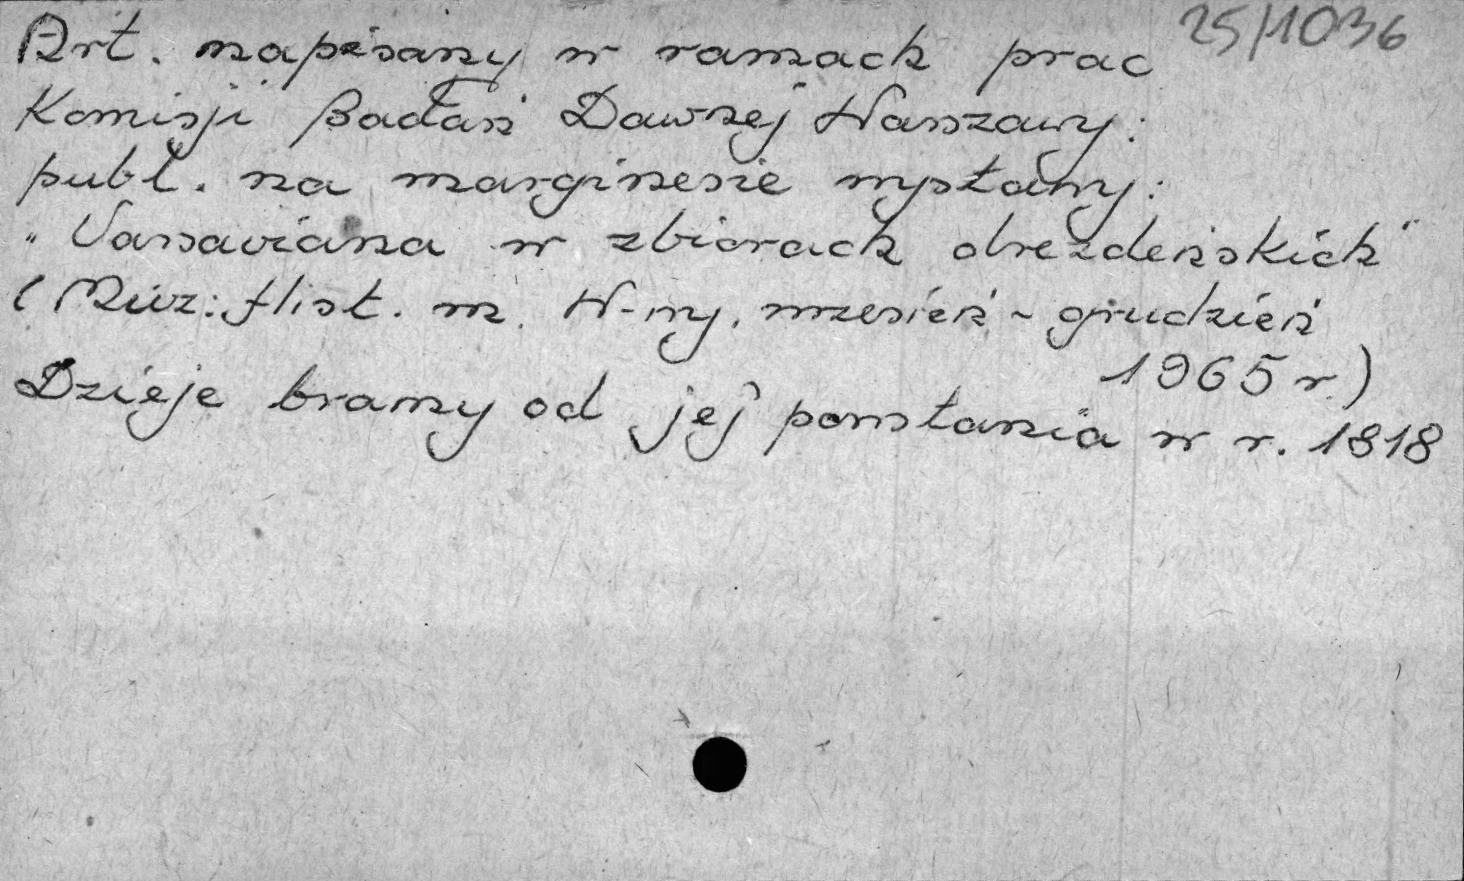 25/1036
Art. napisany w ramach prac
Komisji Badań Dawnej Warszawy:
publ. na marginesie wystawy:
"Varsaviana w zbiorach drezdeńskich"
(Muz: Hist. m. W-wy, wrzesień - grudzień
1965 r.)
Dzieje bramy od jej powstania w r. 1818